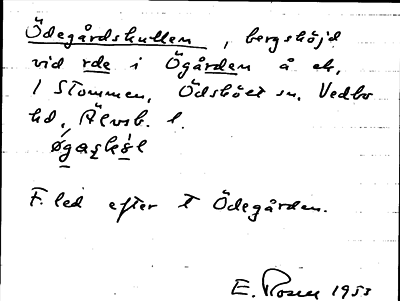 Ödegårdskullen, bergshöjd
vid rde i Ögården å ek.
1 Stommen, Ödskölt sn. Vedbo
hd, Älvsb. l.
F. led efter t Ödegården.
E. Rosell 1953